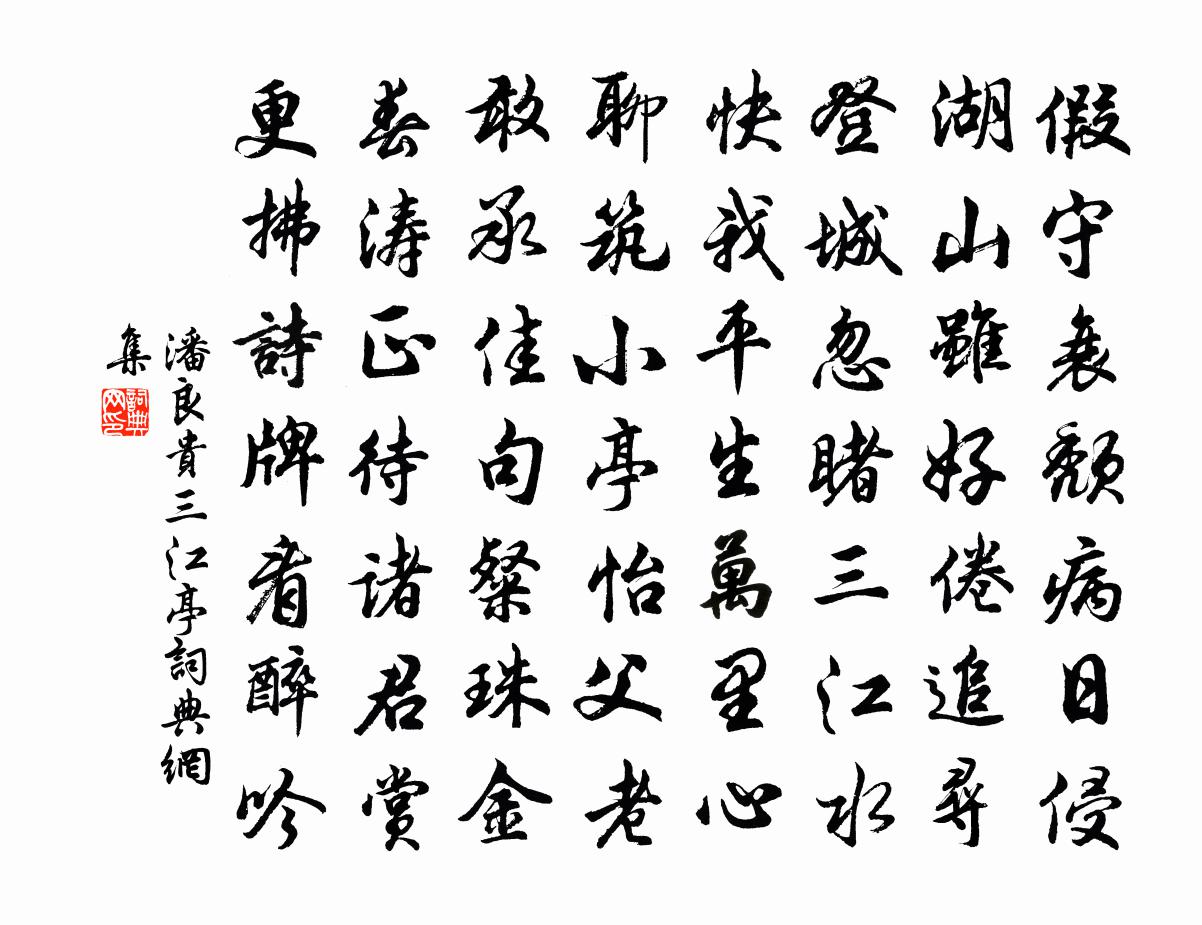 假守衰頹病日侵
湖山雖好倦追尋
登城忽睹三江水
快我平生萬里心
聊筑小亭怡父老
敢承佳句粲珠金
春濤正待诸君赏
更拂詩牌看醉吟
潘良貴三江亭詞典網
集
詞典
网印